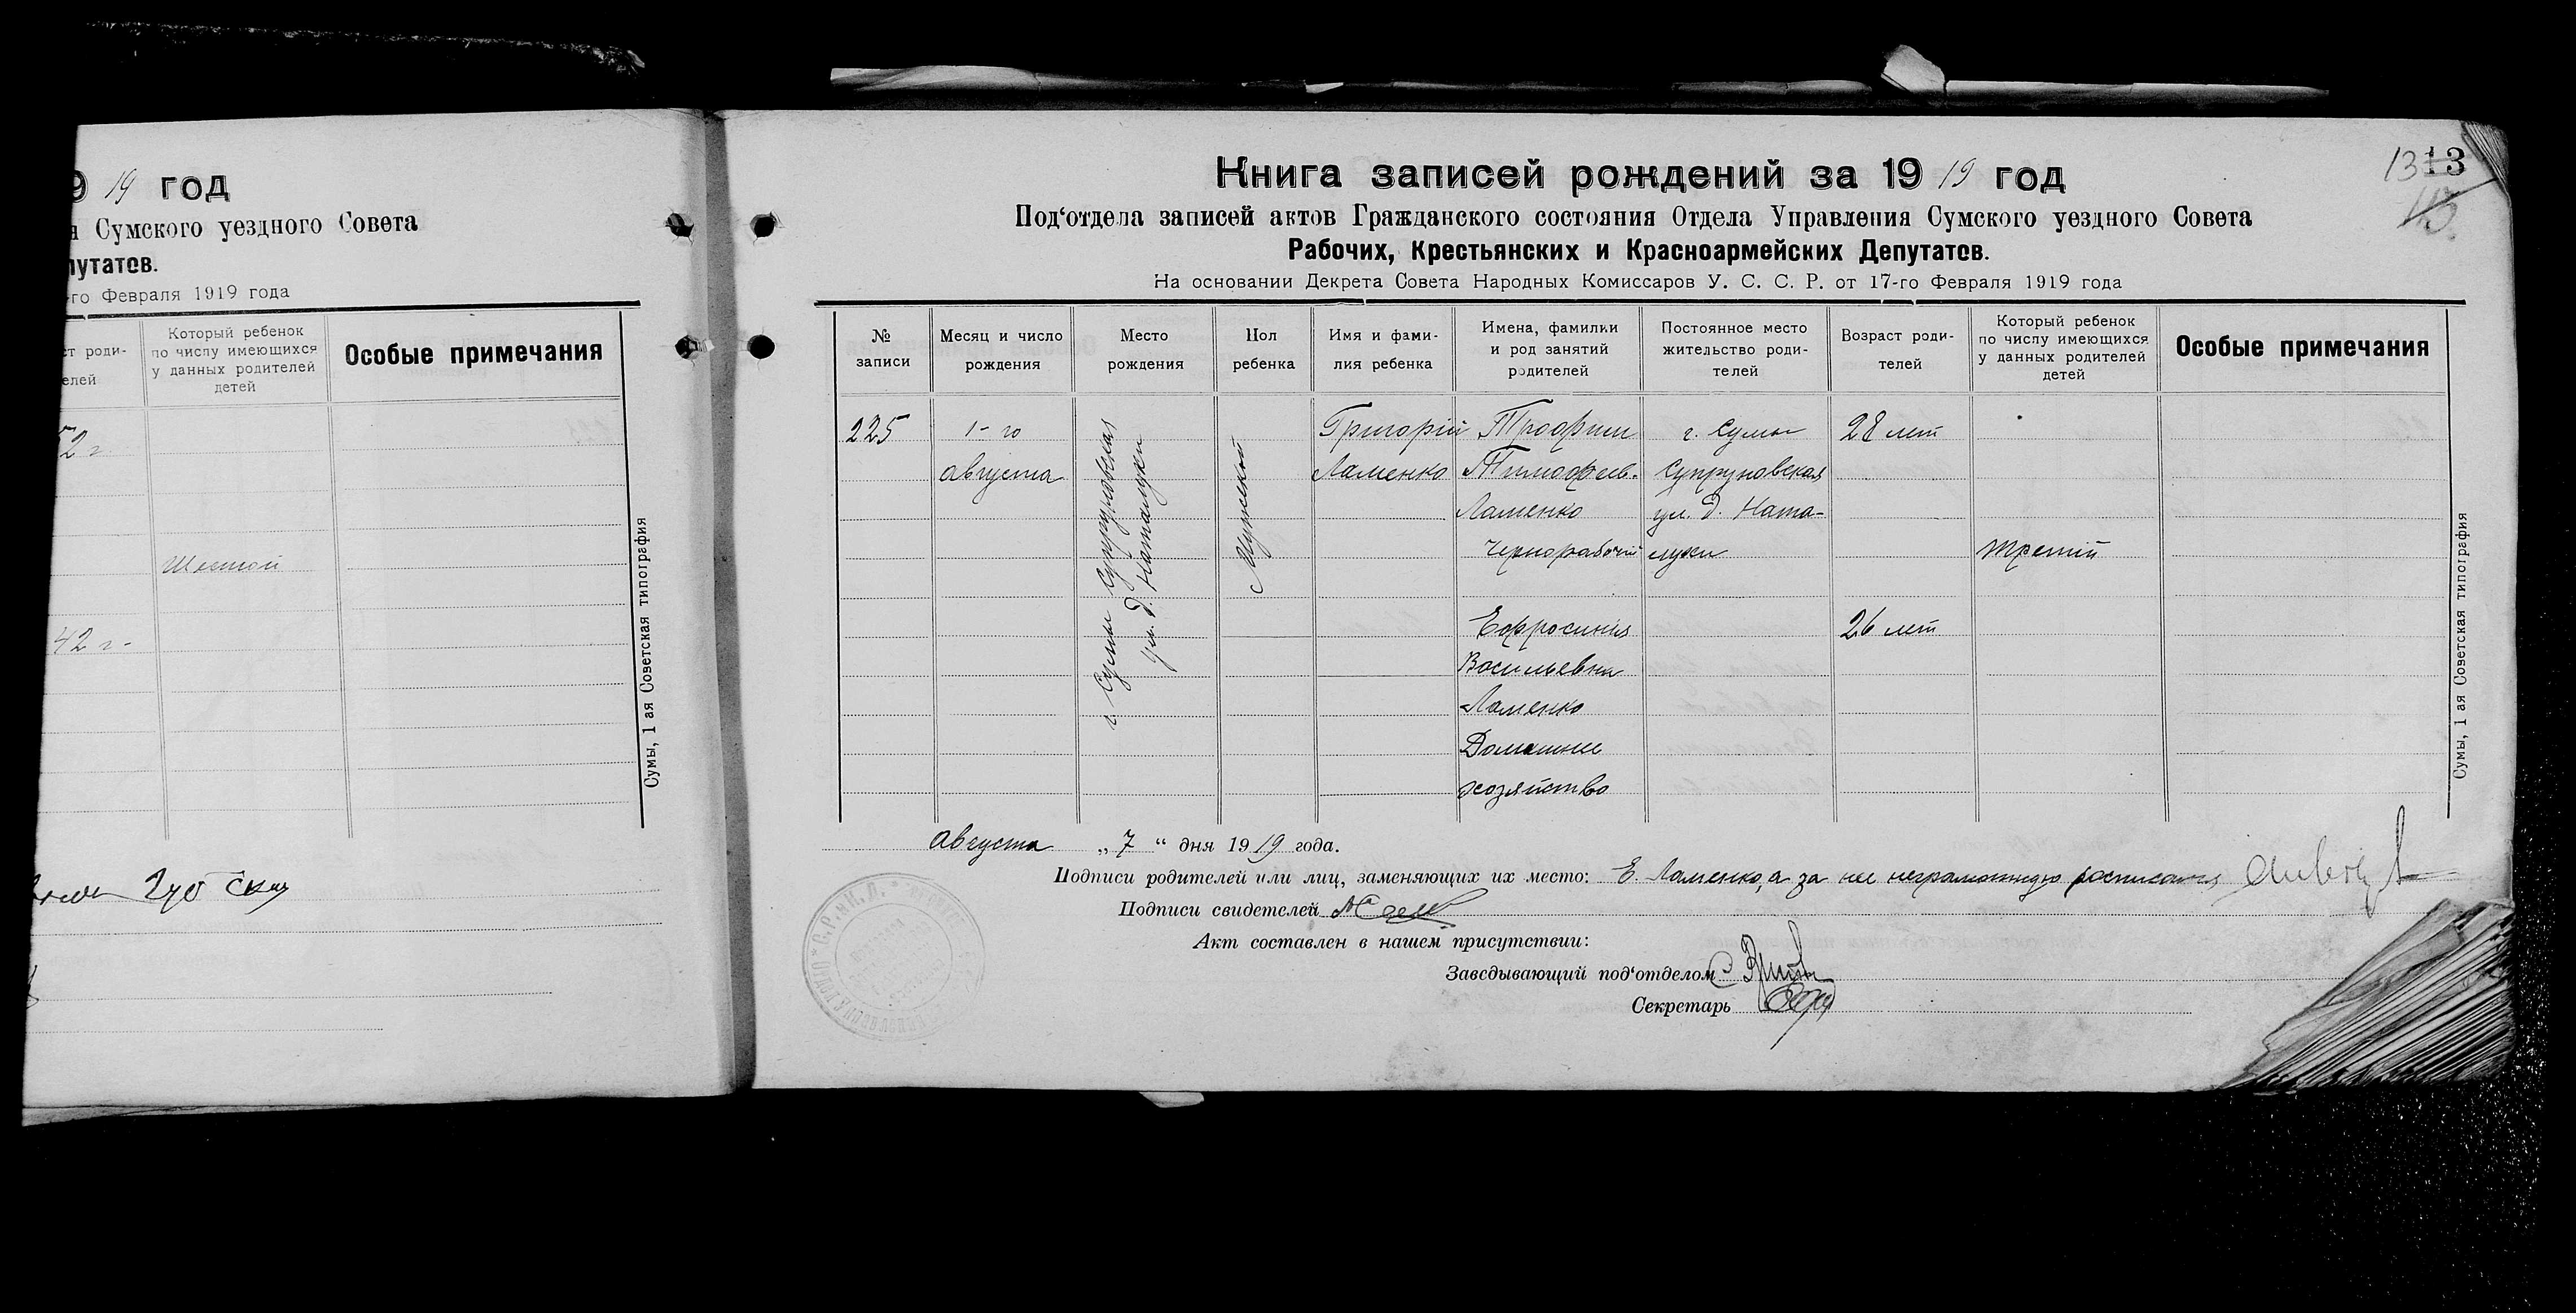 19 год
Сумского уездного Совета
путатов.
-го Февраля 1919 года
Который ребенок
по числу имеющихся
у данных родителей
детей
Особые примечания
ст роди-
елей
2 г
Шестой
42 г-
Сумы, 1 ая Советская типография
Книга записей рождений за 1919 год
13
13
Под‘отдела записей актов Гражданского состояния Отдела Управления Сумского уездного Совета
Рабочих, Крестьянских и Красноармейских Депутатов.
На основании Декрета Совета Народных Комиссаров У. С. С. Р. от 17-го Февраля 1919 года
№
записи
Месяц и число
рождения
Место
рождения
Пол
ребенка
Имя и фами-
лия ребенка
Имена, фамилии
и род занятий
родителей
Постоянное место
жительство роди-
телей
Возраст роди-
телей
Который ребенок
по числу имеющихся
у данных родителей
детей
Особые примечания
225
1-го
августа
г. Сумы Супруновская
ул. д. Наталуки
Мужской
Григорій
Ламенко
Трофим
Тимофеев.
Ламенко
Чернорабочий
г. Сумы
Супруновская
ул. д. Ната-
луки
28 лет
третий
Ефросиния
Васильевна
Ламенко
Домашнее
хозяйство
26 лет
Сумы, 1 ая Советская типография
августа „ 7 “ дня 1919 года.
Подписи родителей или лиц, заменяющих их место: Е. Ламенко, а за нее неграмотную росписался
Подписи свидетелей
Акт составлен в нашем присутствии:
Заведывающий под‘отделом
Секретарь